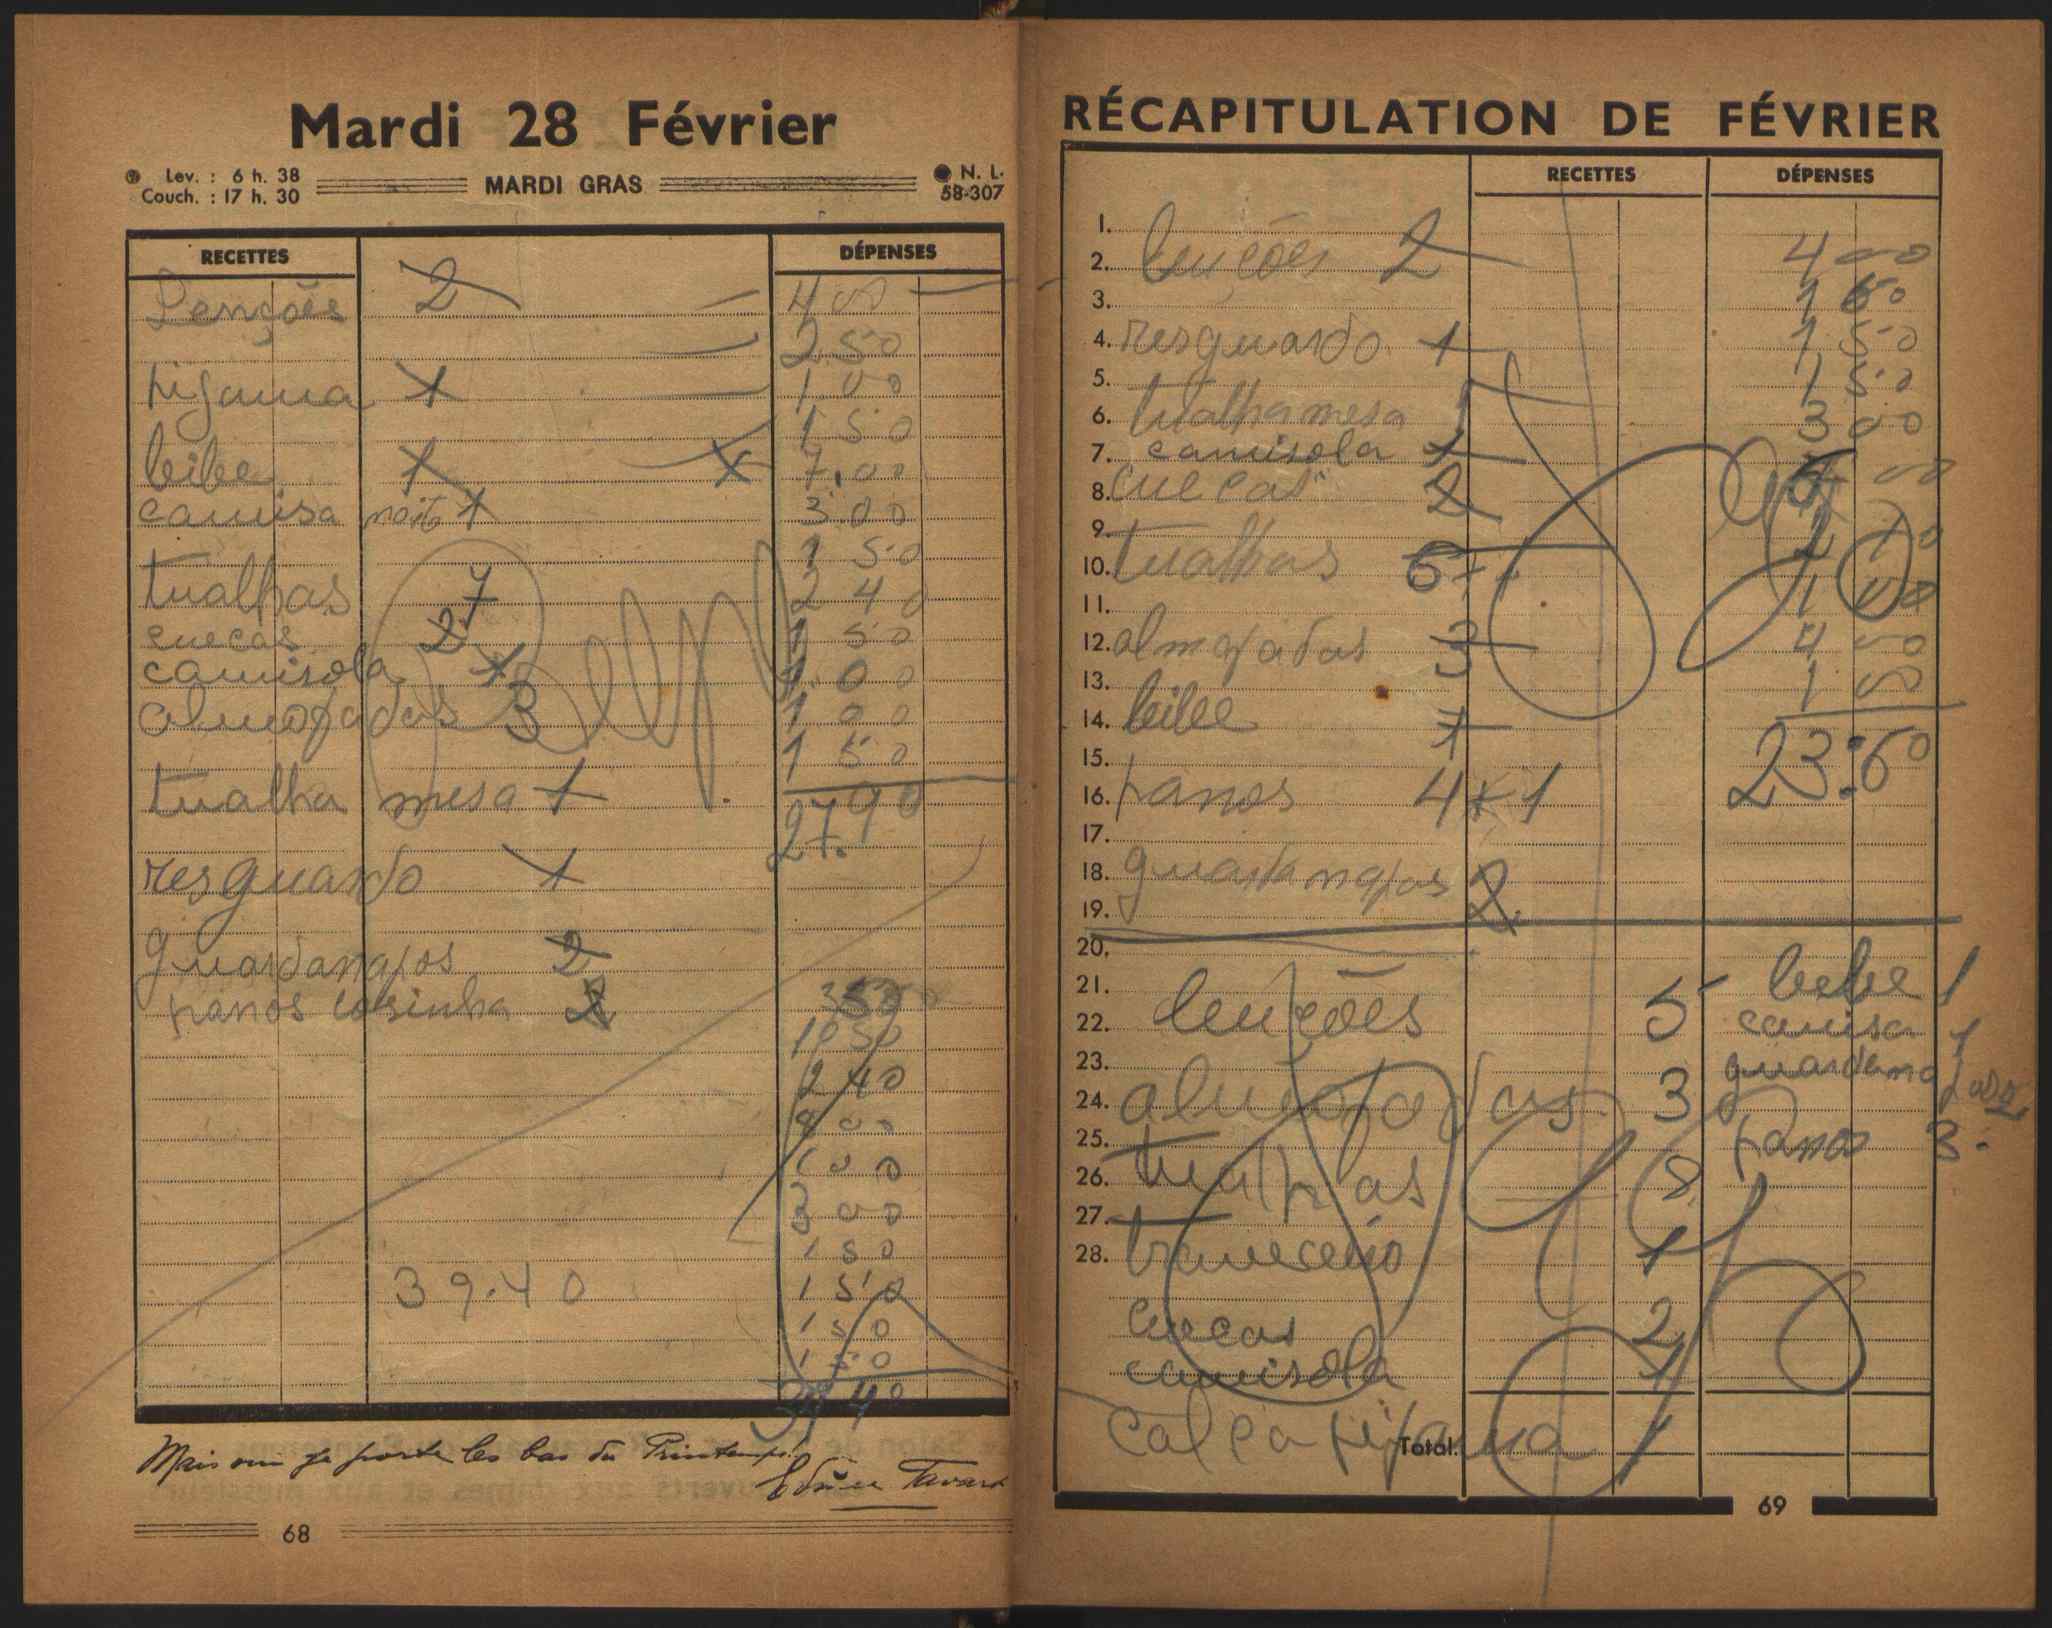 Mardi 28 Février
Lev. : 6 h. 38
Couch. : 17 h. 30
MARDI GRAS
N. L.
58-307
RECETTES
DÉPENSES
Lençóes 2 4 00
2 50
pijama 1 1 00
1 50
beibe 1 x 7.00
camisa noite 1 3.00
1 50
tualhas 7 2 40
cuecas 2 1 50
camisola 1 1.00
almofadas 3 1 00
1 50
tualha mesa 1
27 90
27.
resguardo 1
guardanapos 2
panos cosinha
3 50
10 50
2 40
8 00
1 00
3 00
1 50
39.40 1 50
1 50
1 50
39 40
Mais oui je porte les bas du Printemps!
Tavard
68
RÉCAPITULATION DE FÉVRIER
RECETTES
DÉPENSES
1.
2. lençóes 2 4 00
3. 1 60
4. resguardo 1 1 50
5. 1 50
6. tualha mesa 1 3 00
7. camisola 1
8. cuecas 2 00
9.
10. tualhas 6+1
11. 1 00
12. almofadas 3 4 00
13. 1 00
14. beibe 1
15. 23:60
16. panos 4+1
17.
18. guardanapos 2
19.
20.
21. bebe 1
22. lençoes 5 camisa 1
23. guardanapos 2
24. almofadas 3
25. panos 3.
26. tualhas 8
27.
28. traveceiro 1
cuecas 2
camisola 1
calça pijama 1
Total.
69